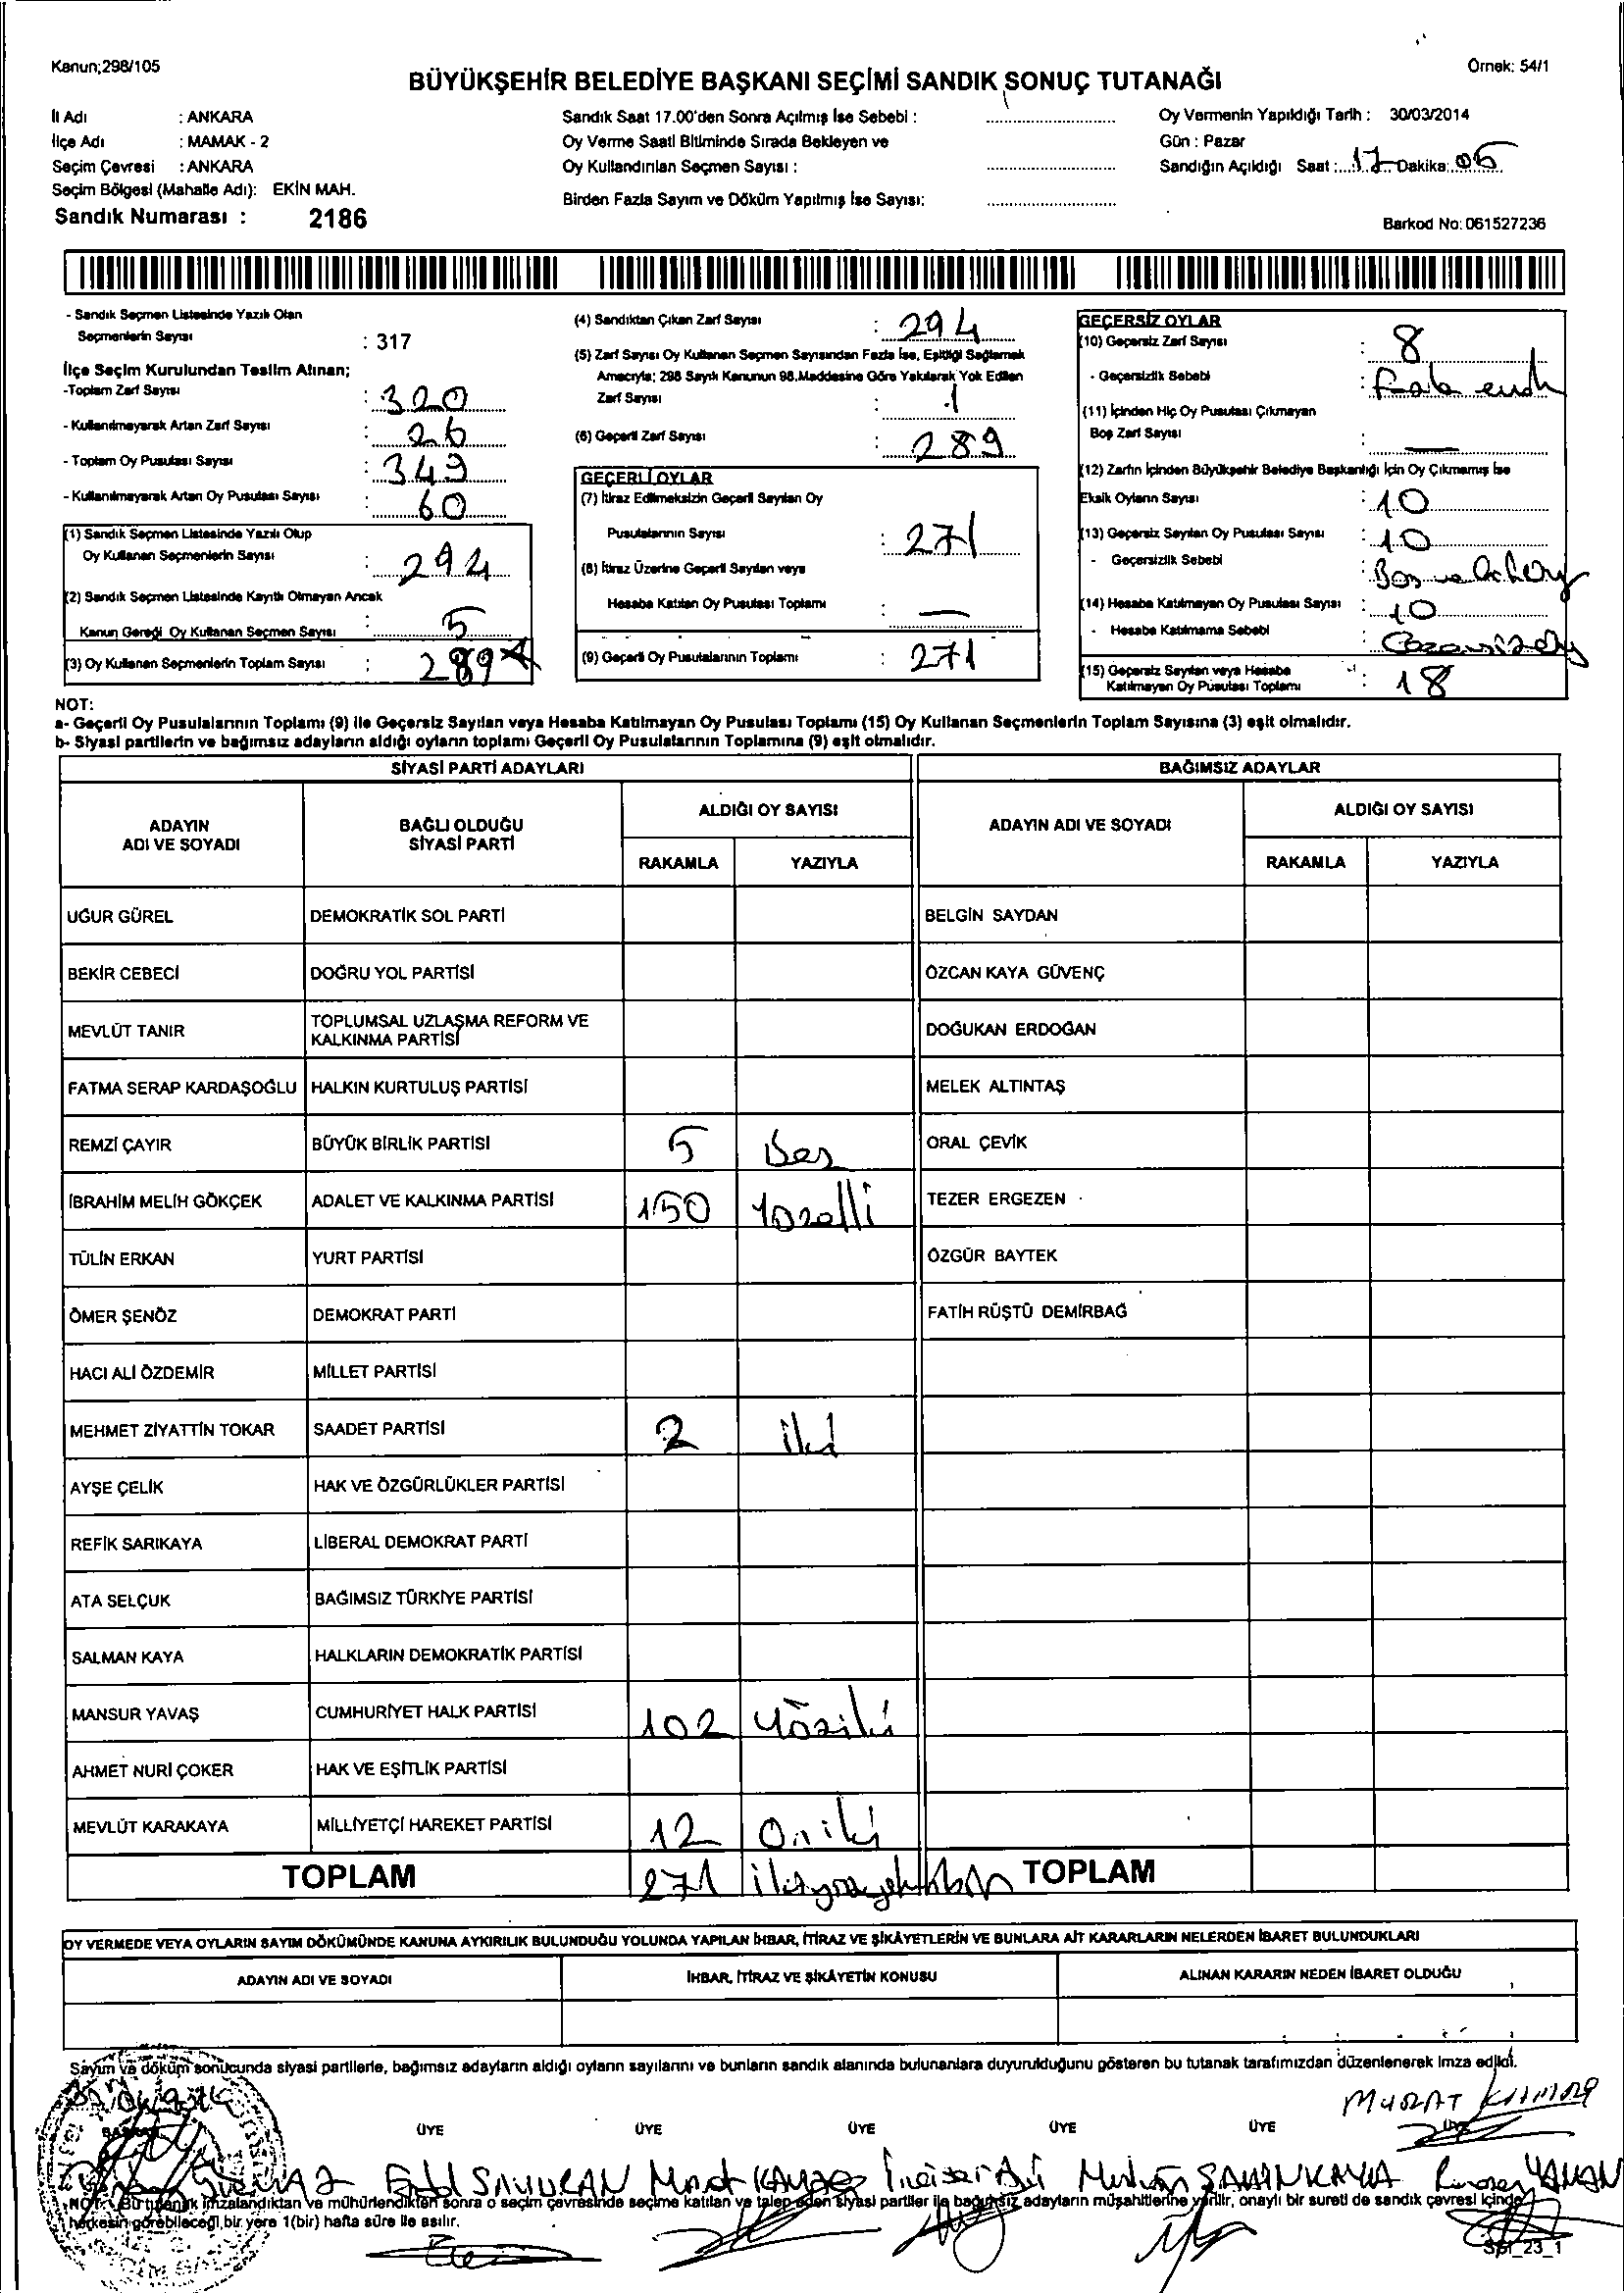 Kanun;298/105
Örnek: 54/1
BÜYÜKŞEHİR BELEDİYE BAŞKANI SEÇİMİ SANDIK SONUÇ TUTANAĞI
İl Adı : ANKARA
İlçe Adı : MAMAK - 2
Seçim Çevresi : ANKARA
Seçim Bölgesi (Mahalle Adı): EKİN MAH.
Sandık Numarası : 2186
Sandık Saat 17.00'den Sonra Açılmış İse Sebebi :
Oy Verme Saati Bitiminde Sırada Bekleyen ve
Oy Kullandırılan Seçmen Sayısı :
Birden Fazla Sayım ve Döküm Yapılmış İse Sayısı:
Oy Vermenin Yapıldığı Tarih : 30/03/2014
Gün : Pazar
Sandığın Açıldığı Saat : 17 Dakika: 05
Barkod No: 061527236
- Sandık Seçmen Listesinde Yazılı Olan
Seçmenlerin Sayısı : 317
İlçe Seçim Kurulundan Teslim Alınan;
-Toplam Zarf Sayısı : 320
- Kullanılmayarak Artan Zarf Sayısı : 26
- Toplam Oy Pusulası Sayısı : 349
- Kullanılmayarak Artan Oy Pusulası Sayısı : 60
(1) Sandık Seçmen Listesinde Yazılı Olup
Oy Kullanan Seçmenlerin Sayısı : 294
(2) Sandık Seçmen Listesinde Kayıtlı Olmayan Ancak
Kanun Gereği Oy Kullanan Seçmen Sayısı : 5
(3) Oy Kullanan Seçmenlerin Toplam Sayısı : 289
(4) Sandıktan Çıkan Zarf Sayısı : 294
(5) Zarf Sayısı Oy Kullanan Seçmen Sayısından Fazla İse, Eşitliği Sağlamak
Amacıyla; 298 Sayılı Kanunun 98.Maddesine Göre Yakılarak Yok Edilen
Zarf Sayısı : 1
(6) Geçerli Zarf Sayısı : 289
GEÇERLİ OYLAR
(7) İtiraz Edilmeksizin Geçerli Sayılan Oy
Pusulalarının Sayısı : 271
(8) İtiraz Üzerine Geçerli Sayılan veya
Hesaba Katılan Oy Pusulası Toplamı : —
(9) Geçerli Oy Pusulalarının Toplamı : 271
GEÇERSİZ OYLAR
(10) Geçersiz Zarf Sayısı : 8
- Geçersizlik Sebebi :
(11) İçinden Hiç Oy Pusulası Çıkmayan
Boş Zarf Sayısı : —
(12) Zarfın İçinden Büyükşehir Belediye Başkanlığı İçin Oy Çıkmamış İse
Eksik Oyların Sayısı : 10
(13) Geçersiz Sayılan Oy Pusulası Sayısı : 10
- Geçersizlik Sebebi :
(14) Hesaba Katılmayan Oy Pusulası Sayısı : 10
- Hesaba Katılmama Sebebi :
(15) Geçersiz Sayılan veya Hesaba
Katılmayan Oy Pusulası Toplamı : 18
NOT:
a- Geçerli Oy Pusulalarının Toplamı (9) ile Geçersiz Sayılan veya Hesaba Katılmayan Oy Pusulası Toplamı (15) Oy Kullanan Seçmenlerin Toplam Sayısına (3) eşit olmalıdır.
b- Siyasi partilerin ve bağımsız adayların aldığı oyların toplamı Geçerli Oy Pusulalarının Toplamına (9) eşit olmalıdır.
SİYASİ PARTİ ADAYLARI
BAĞIMSIZ ADAYLAR
ADAYIN
ADI VE SOYADI
BAĞLI OLDUĞU
SİYASİ PARTİ
ALDIĞI OY SAYISI
RAKAMLA YAZIYLA
ADAYIN ADI VE SOYADI
ALDIĞI OY SAYISI
RAKAMLA YAZIYLA
UĞUR GÜREL DEMOKRATİK SOL PARTİ BELGİN SAYDAN
BEKİR CEBECİ DOĞRU YOL PARTİSİ ÖZCAN KAYA GÜVENÇ
MEVLÜT TANIR TOPLUMSAL UZLAŞMA REFORM VE
KALKINMA PARTİSİ DOĞUKAN ERDOĞAN
FATMA SERAP KARDAŞOĞLU HALKIN KURTULUŞ PARTİSİ MELEK ALTINTAŞ
REMZİ ÇAYIR BÜYÜK BİRLİK PARTİSİ 5 Beş ORAL ÇEVİK
İBRAHİM MELİH GÖKÇEK ADALET VE KALKINMA PARTİSİ 150 Yüzelli TEZER ERGEZEN
TÜLİN ERKAN YURT PARTİSİ ÖZGÜR BAYTEK
ÖMER ŞENÖZ DEMOKRAT PARTİ FATİH RÜŞTÜ DEMİRBAĞ
HACI ALİ ÖZDEMİR MİLLET PARTİSİ
MEHMET ZİYATTİN TOKAR SAADET PARTİSİ 2 iki
AYŞE ÇELİK HAK VE ÖZGÜRLÜKLER PARTİSİ
REFİK SARIKAYA LİBERAL DEMOKRAT PARTİ
ATA SELÇUK BAĞIMSIZ TÜRKİYE PARTİSİ
SALMAN KAYA HALKLARIN DEMOKRATİK PARTİSİ
MANSUR YAVAŞ CUMHURİYET HALK PARTİSİ 102 Yüziki
AHMET NURİ ÇOKER HAK VE EŞİTLİK PARTİSİ
MEVLÜT KARAKAYA MİLLİYETÇİ HAREKET PARTİSİ 12 Oniki
TOPLAM 271 TOPLAM
OY VERMEDE VEYA OYLARIN SAYIM DÖKÜMÜNDE KANUNA AYKIRILIK BULUNDUĞU YOLUNDA YAPILAN İHBAR, İTİRAZ VE ŞİKÂYETLERİN VE BUNLARA AİT KARARLARIN NELERDEN İBARET BULUNDUKLARI
ADAYIN ADI VE SOYADI İHBAR, İTİRAZ VE ŞİKÂYETİN KONUSU ALINAN KARARIN NEDEN İBARET OLDUĞU
Sayım ve döküm sonucunda siyasi partilerle, bağımsız adayların aldığı oyların sayılarını ve bunların sandık alanında bulunanlara duyurulduğunu gösteren bu tutanak tarafımızdan düzenlenerek imza edildi.
MURAT
ÜYE ÜYE ÜYE ÜYE ÜYE
SAVURAN ŞAHİNKAYA YAMAN
NOT: Bu tutanak imzalandıktan ve mühürlendikten sonra o seçim çevresinde seçime katılan ve talep eden siyasi partiler ile bağımsız adayların müşahitlerine verilir, onaylı bir sureti de sandık çevresi içinde
herkesin görebileceği bir yere 1(bir) hafta süre ile asılır.